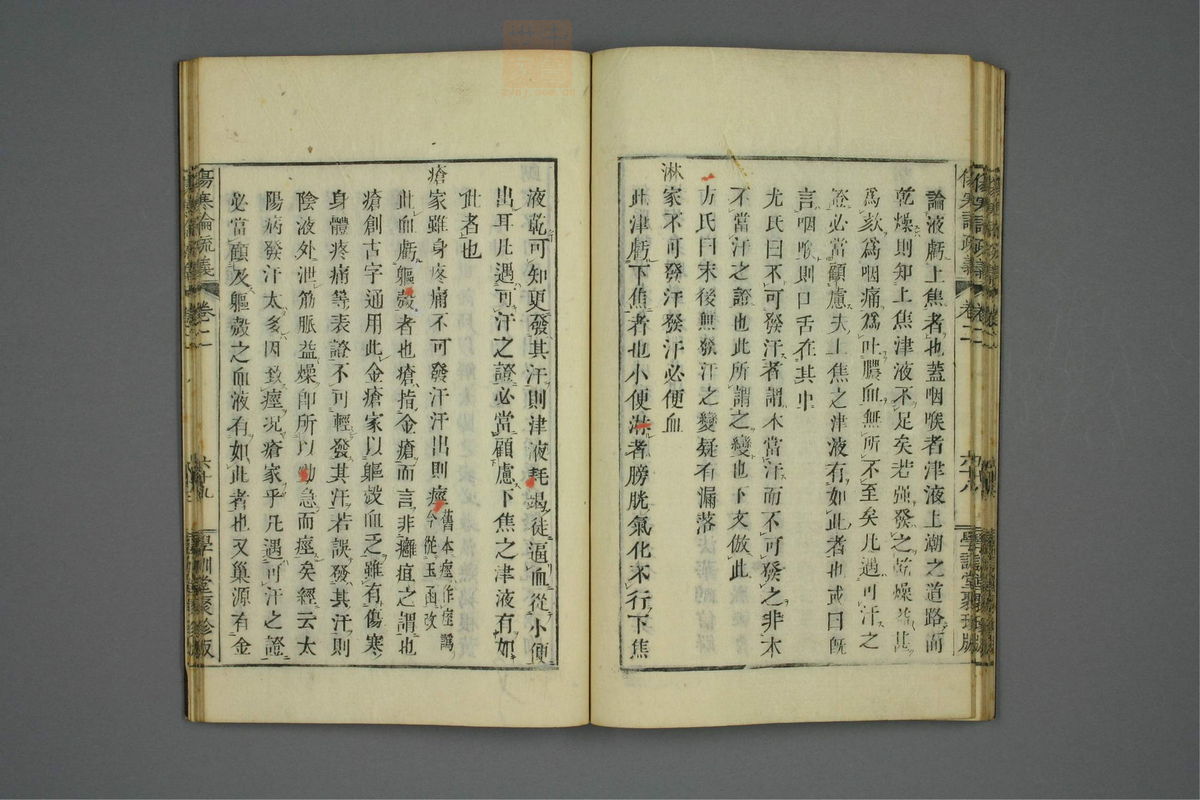 傷寒論疏義 卷二 六十八 學訓堂聚珍版
論液虧上焦者也蓋咽喉者津液上潮之道路而
乾燥則知上焦津液不足矣若强發之乾燥益甚
爲欬爲咽痛爲吐膿血無所不至矣凡遇可汗之
證必當顧慮夫上焦之津液有如此者也或曰旣
言咽喉則口舌在其中
尤氏曰不可發汗者謂本當汗而不可發之非本
不當汗之證也此所謂之變也下文倣此
方氏曰末後無發汗之變疑有漏落
淋家不可發汗發汗必便血
此津虧下焦者也小便淋者膀胱氣化不行下焦
液乾可知更發其汗則津液耗竭徒逼血從小便
出耳凡遇可汗之證必當顧慮下焦之津液有如
此者也
瘡家雖身疼痛不可發汗汗出則痙舊本痙作痓譌
今從玉函改
此血虧軀殼者也瘡指金瘡而言非癰疽之謂也
瘡創古字通用此金瘡家以軀殼血乏雖有傷寒
身體疼痛等表證不可輕發其汗若誤發其汗則
陰液外泄筋脈益燥卽所以勁急而痙矣經云太
陽病發汗太多因致痙況瘡家乎凡遇可汗之證
必當顧及軀殼之血液有如此者也又巢源有金
傷寒論疏義 卷二 六十九 學訓堂聚珍版